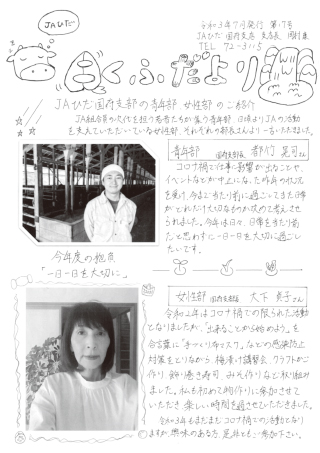 JAひだ
令和3年7月発行 第17号
JAひだ 国府支店 支店長
TEL 72-3115
こくふだより
JAひだ国府支部の青年部 女性部のご紹介
JA組合員の次代を担う若者たちが集う青年部 日頃よりJAの活動
を支えていただいている女性部、それぞれの部長さんより一言いただきました。
青年部 国府支部長 都竹 さん
コロナ禍で仕事に影響が出ることや、
イベントなどが中止になった昨年の状況
を受け、今まで当たり前に過ごしてきた日常
がどれだけ大切なものか改めて考えさせ
られました。今年は日々、日常を当たり前
だと思わずに一日一日を大切に過ごし
たいです。
今年度の抱負
「一日一日を大切に」
女性部 国府支部長 大下 貴子さん
令和2年はコロナ禍での限られた活動
となりましたが、「出来ることから始めよう」を
合言葉に「手づくりマスク」などの感染防止
対策をとりながら、梅漬け講習会、クラフトかご
作り、飾り巻き寿司、みそ作りなど取り組み
ました。私も初めて物作りに参加させて
いただき楽しい時間を過させていただきました。
令和3年もまだまだコロナ禍での活動となり
ますが、興味のある方、是非ともご参加下さい。